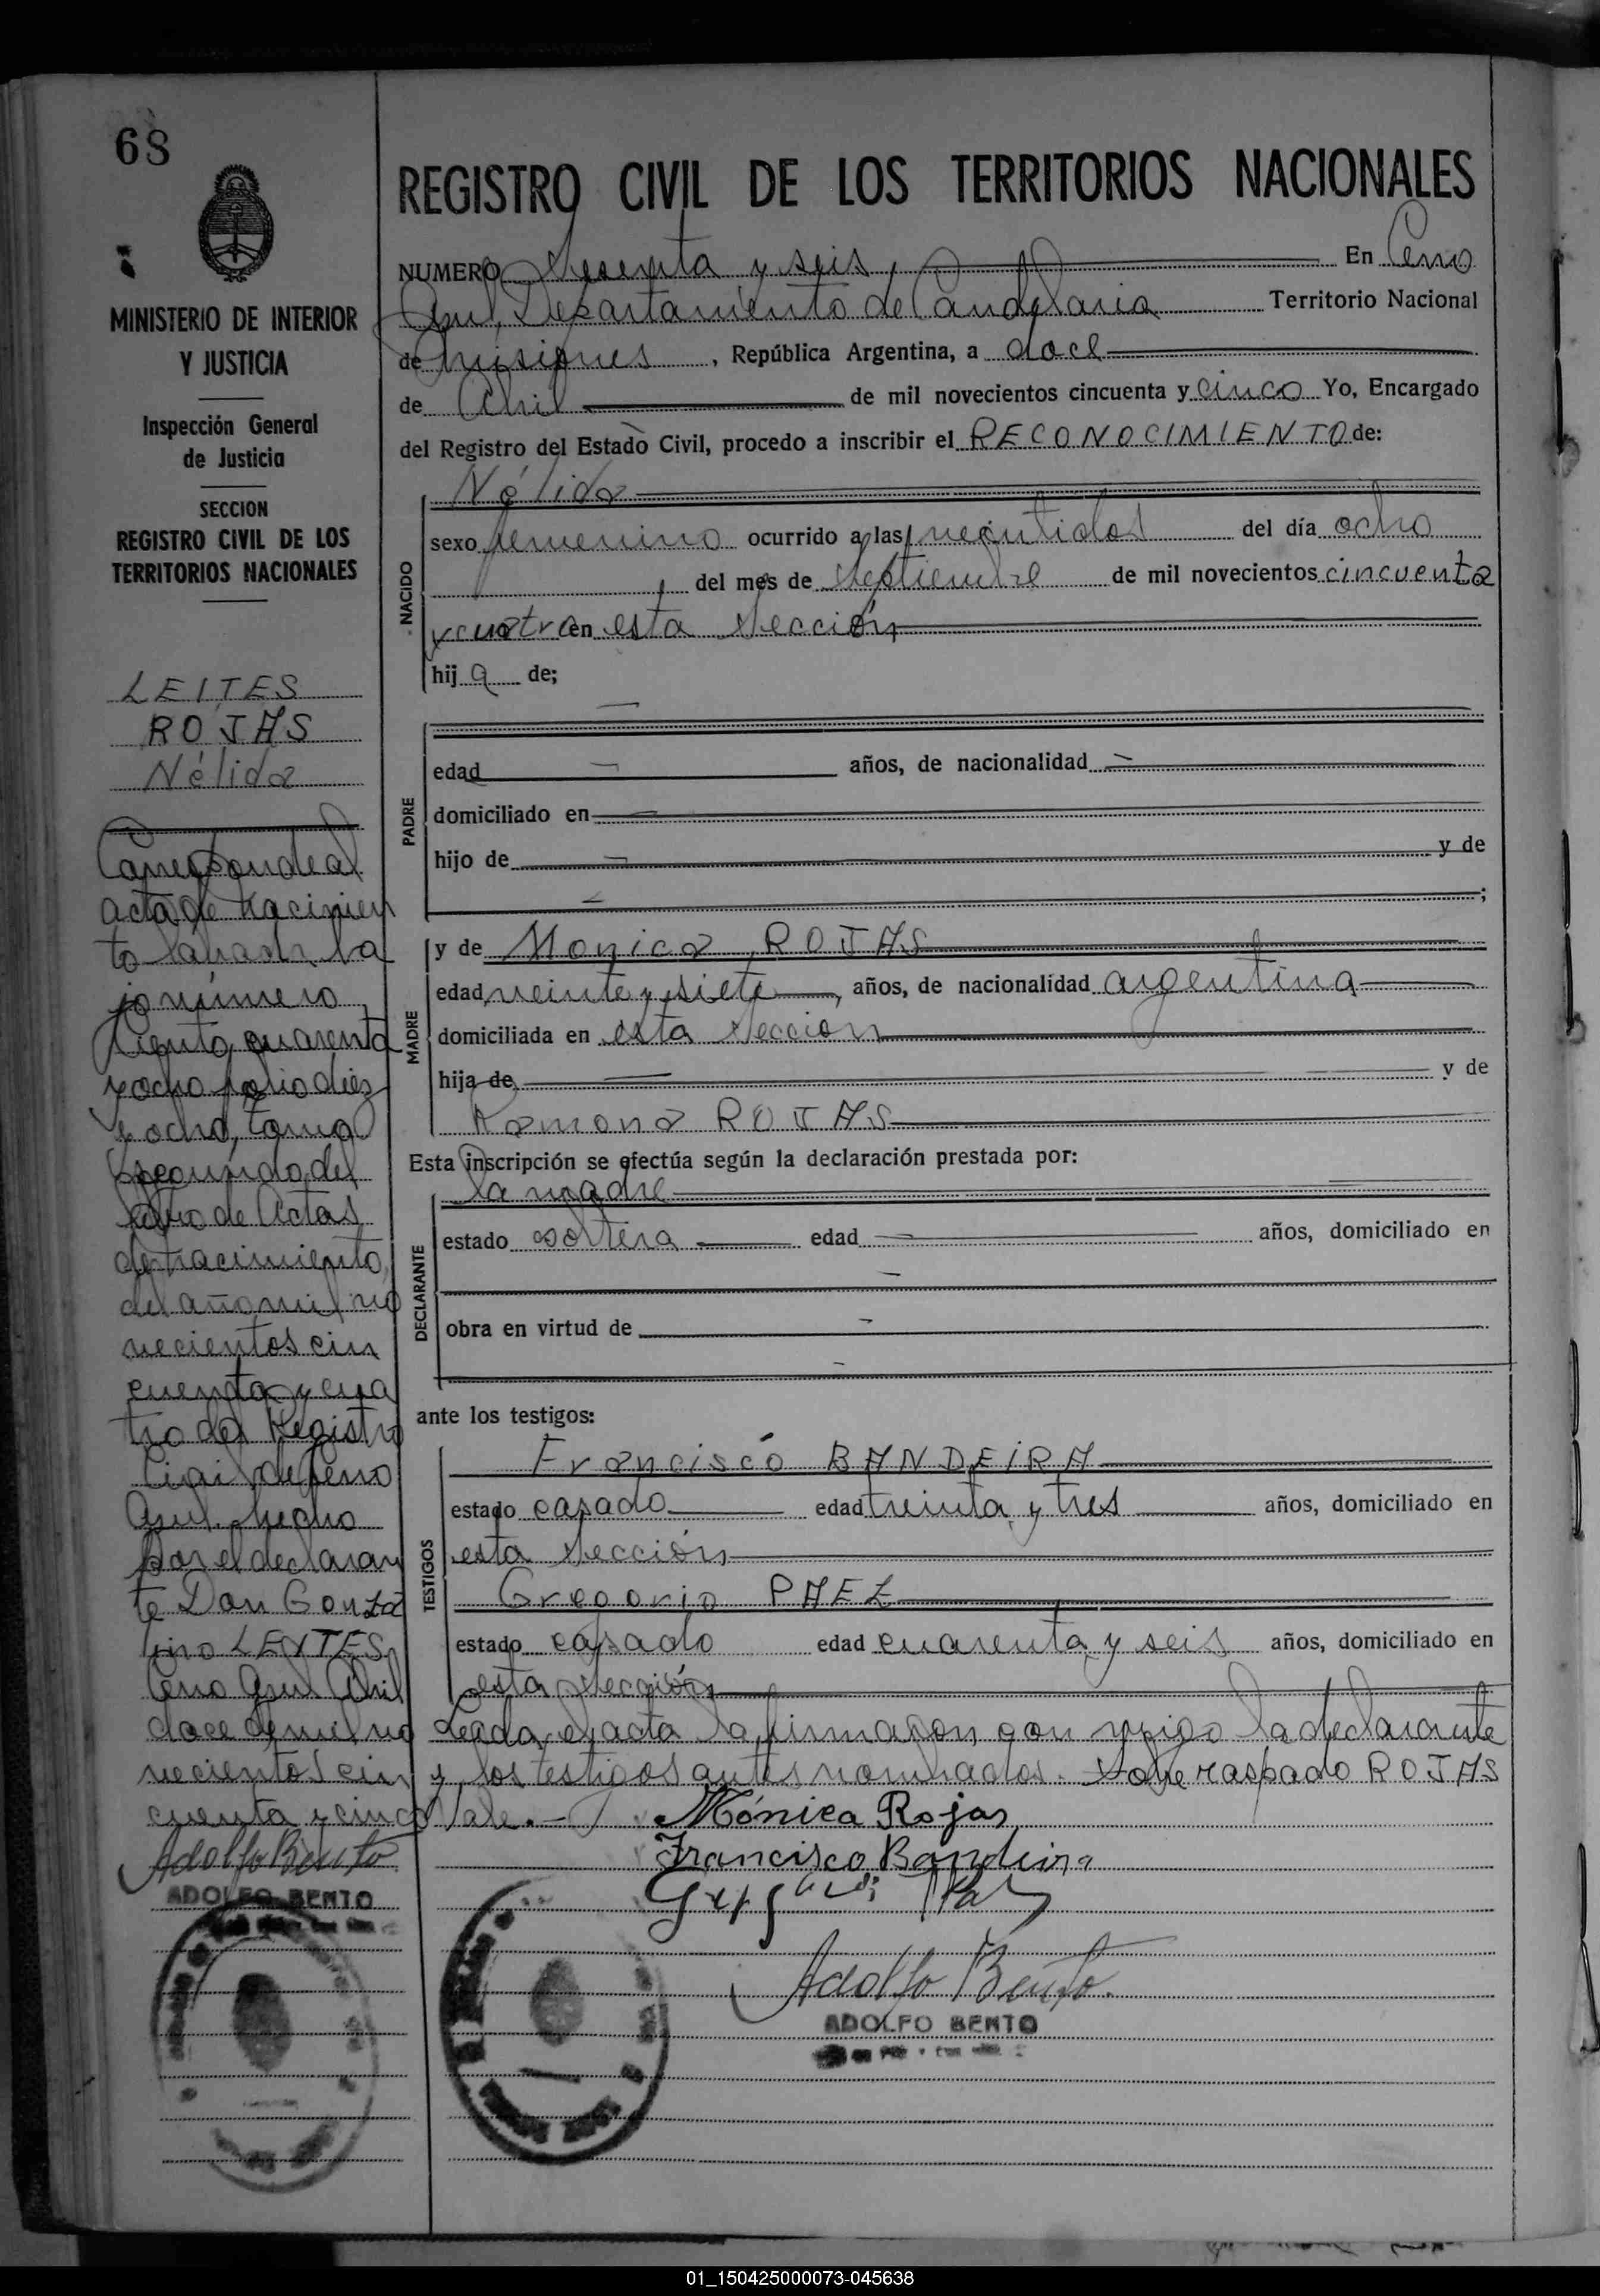 68
MINISTERIO DE INTERIOR
Y JUSTICIA
Inspección General
de Justicia
SECCION
REGISTRO CIVIL DE LOS
TERRITORIOS NACIONALES
LEITES
ROJAS
Nélida
Corresponde al
acta de nacimien
to labrada ba
jo número
Ciento cuarenta
y ocho folio diez
y ocho, tomo
segundo del
Libro de Actas
de nacimiento,
del año mil no
vecientos cin
cuenta y cua
tro del Registro
Civil de Cerro
Azul. hecho
por el declaran
te Don Gonza
lino LEITES.
Cerro Azul Abril
doce de mil no
vecientos cin
cuenta y cinco
Adolfo Bento
ADOLFO BENTO
REGISTRO CIVIL DE LOS TERRITORIOS NACIONALES
NUMERO Sesenta y seis, En Cerro
Azul, Departamento de Candelaria Territorio Nacional
de Misiones, República Argentina, a doce
de Abril de mil novecientos cincuenta y cinco Yo, Encargado
del Registro del Estado Civil, procedo a inscribir el RECONOCIMIENTO de:
NACIDO
Nélida
sexo femenino ocurrido a las veintidos del día ocho
del mes de Septiembre de mil novecientos cincuenta
y cuatro en esta Sección
hija de;
PADRE
edad años, de nacionalidad
domiciliado en
hijo de y de
;
MADRE
y de Monica ROJAS
edad veinte y siete, años, de nacionalidad argentina
domiciliada en esta Sección
hija de y de
Ramona ROJAS
Esta inscripción se efectúa según la declaración prestada por:
DECLARANTE
la madre
estado soltera edad años, domiciliado en
obra en virtud de
ante los testigos:
TESTIGOS
Francisco BANDEIRA
estado casado edad treinta y tres años, domiciliado en
esta Sección
Gregorio PAEZ
estado casado edad cuarenta y seis años, domiciliado en
esta Sección
Leida el acta la firmaron con migo la declarante
y los testigos antes nombrados. Sobre raspado ROJAS
Vale.-
Mónica Rojas
Francisco Bandeira
Adolfo Bento.
ADOLFO BENTO
01_150425000073-045638